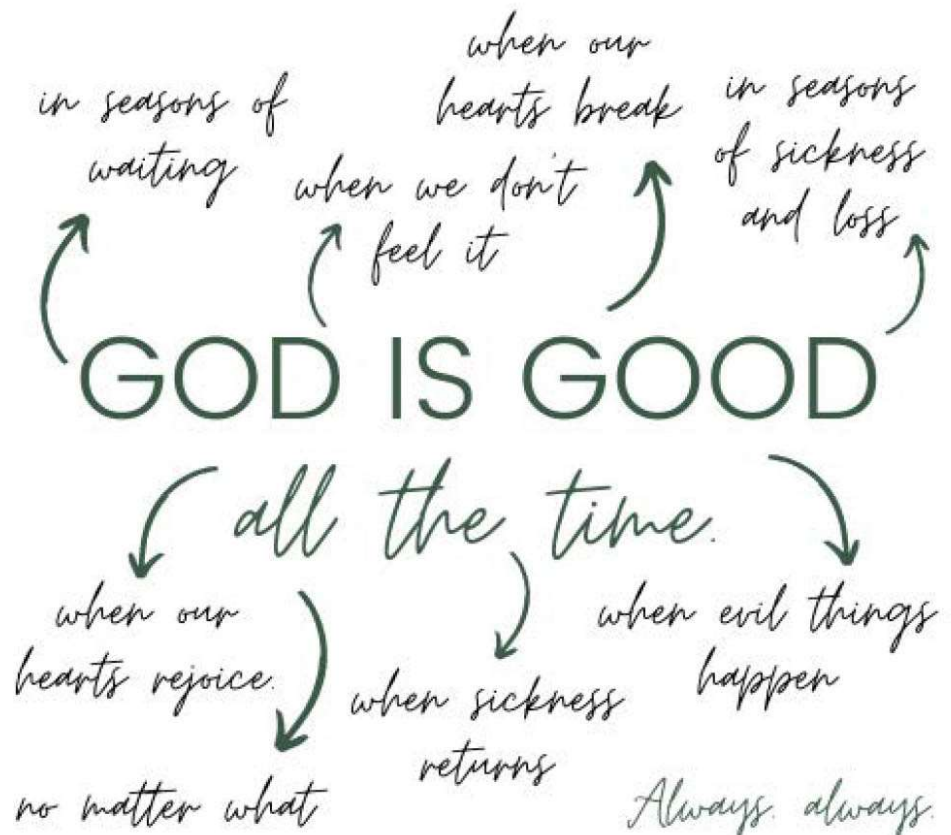 in seasons of
waiting
when we don't
feel it
when our
hearts break
in seasons
of sickness
and loss
GOD IS GOOD
all the time.
when our
hearts rejoice.
no matter what
when sickness
returns
when evil things
happen
Always. always.